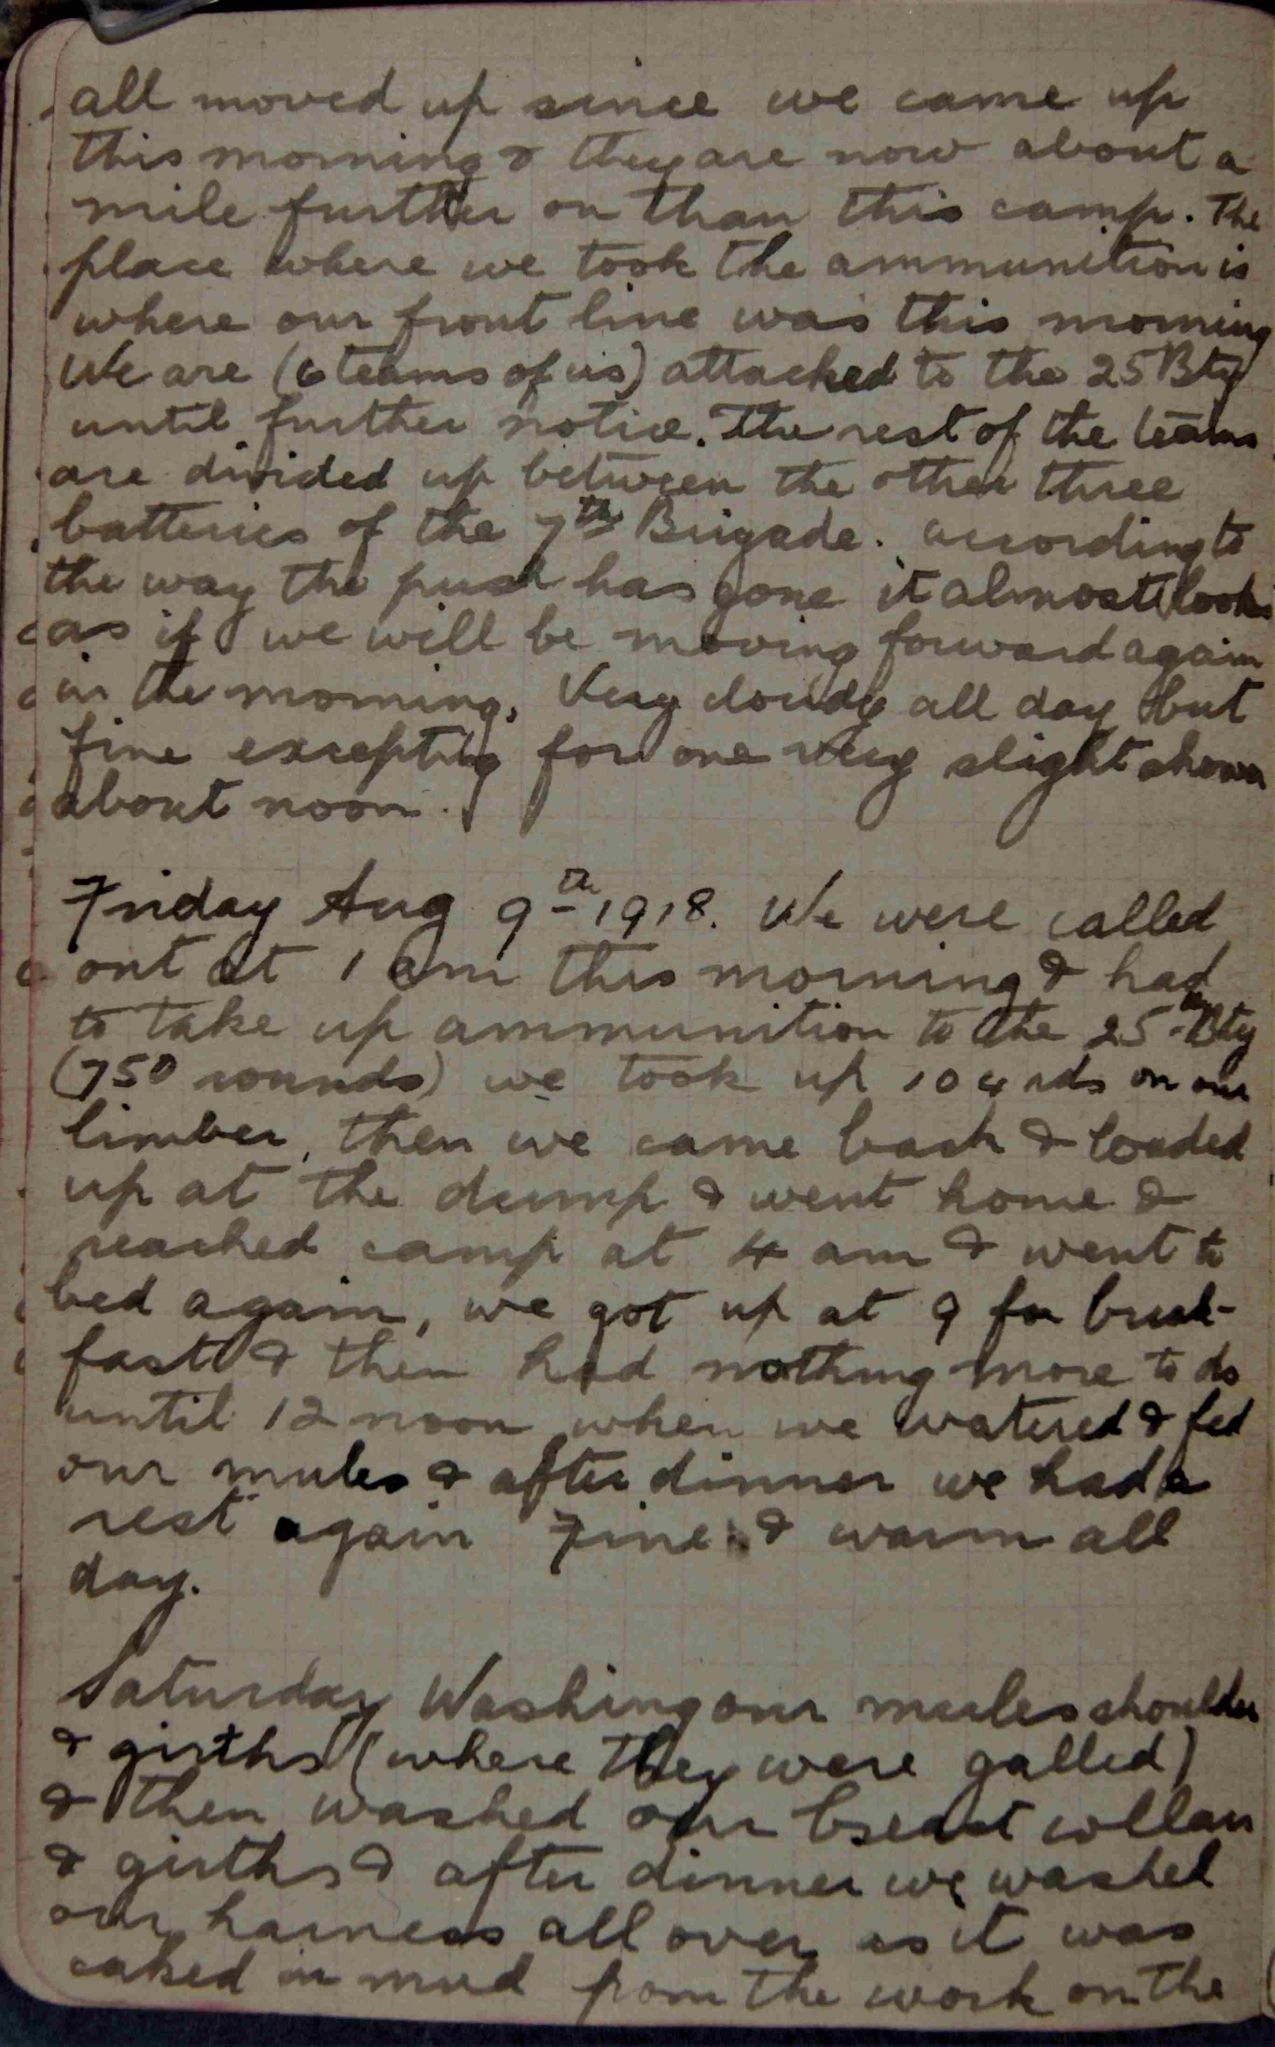 all moved up since we came up
this morning & they are now about a
mile further on than this camp. The
place where we took the ammunition is
where our front line was this morning
We are (6 teams of us) attached to the 25 Bty
until further notice. The rest of the teams
are divided up between the other three
batteries of the 7th Brigade. according to
the way the push has gone it almost looks
as if we will be moving forward again
in the morning. Very cloudy all day but
fine excepting for one very slight shower
about noon.
Friday Aug 9th 1918. We were called
out at 1 am this morning & had
to take up ammunition to the 25th Bty
(750 rounds) we took up 104 rds on our
limber, then we came back & loaded
up at the dump & went home &
reached camp at 4 am & went to
bed again, we got up at 9 for break-
fast & then had nothing more to do
until 12 noon when we watered & fed
our mules & after dinner we had a
rest again Fine & warm all
day.
Saturday Washing our mules shoulder
& girths (where they were galled)
& then washed our breast collars
& girths & after dinner we washed
our harness all over as it was
caked in mud from the work on the